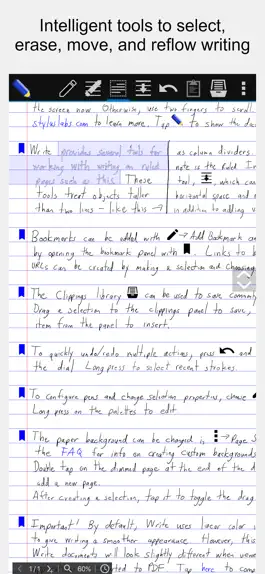 Intelligent tools to select,
erase, move, and reflow writing
the screen now. Otherwise, use two fingers to scroll.
styluslabs.com to learn more. Tap to show the doc
Write provides several tools for
working with writing on ruled
pages such as this. These
tools treat objects taller
than two lines – like this →
as column dividers.
note is the Ruled In
tool, , which can
horizontal space and r
in addition to adding v
Bookmarks can be added with → Add Bookmark an
by opening the bookmark panel with . Links to b
URLs can be created by making a selection and choosing
The Clippings library can be used to save commonly
Drag a selection to the clippings panel to save,
item from the panel to insert.
To quickly undo/redo multiple actions, press and
the dial. Long press to select recent strokes.
To configure pens and change selection properties, choose
Long press on the palettes to edit.
The paper background can be changed in → Page S
the FAQ for info on creating custom backgrounds
Double tap on the dimmed page at the end of the d
add a new page.
After creating a selection, tap it to toggle the drag
Important! By default, Write uses linear color i
to give writing a smoother appearance. However, this
Write documents will look slightly different when viewe
rted to PDF. Tap here to comp
1/1
60%